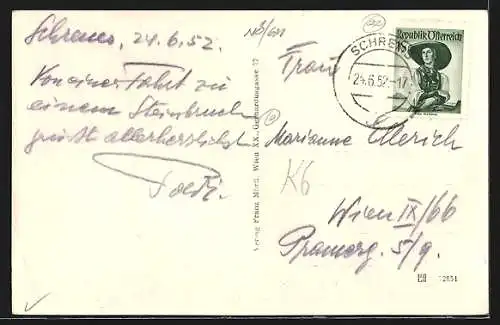 Schrems, 24.6.52.
Von einer Fahrt zu
einem Steinbruch
grüßt allerherzlichst
Poldi.
Verlag Franz Mörtl, Wien XX., Gerhardusgasse 27
Republik Österreich
SCHREMS
24.6.52.-17
Frau
Marianne Ullerich
K6
Wien IX/66
Pramerg. 5/9.